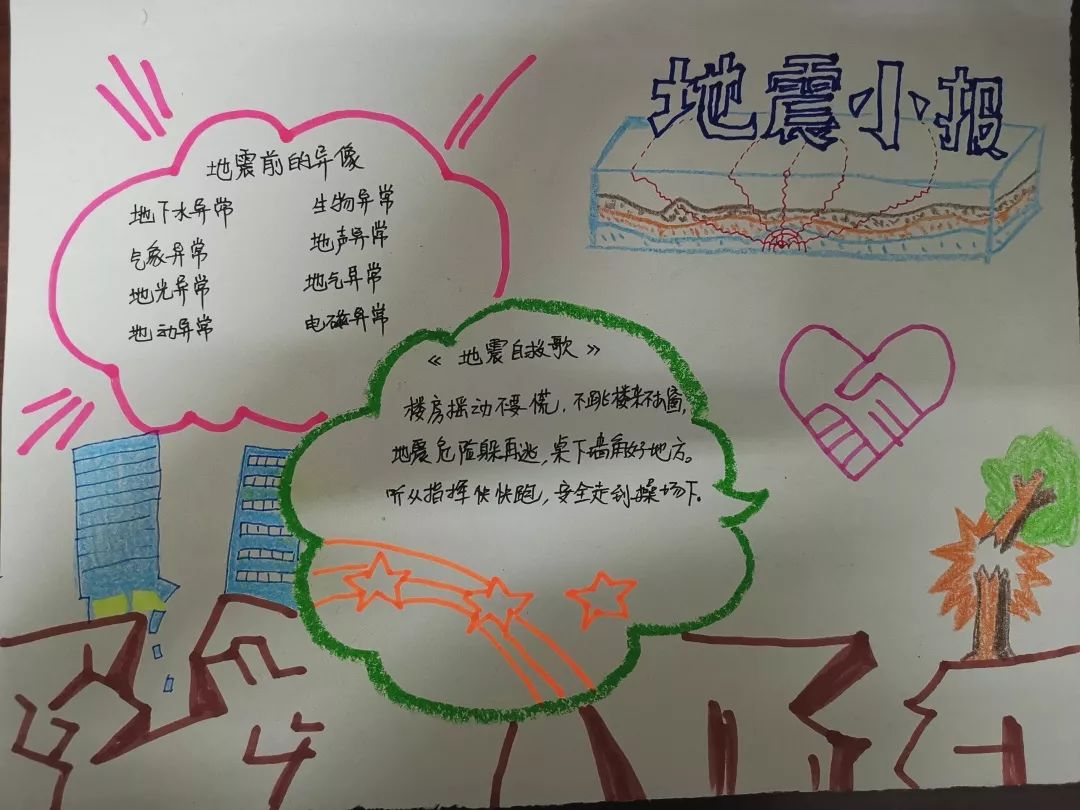 地震小报
地震前的异像
地下水异常 生物异常
气象异常 地声异常
地光异常 地气异常
地动异常 电磁异常
《地震自救歌》
楼房摇动不要慌,不跳楼来不扒窗,
地震危险躲再逃,桌下墙角好地方。
听从指挥快快跑,安全走到操场下.